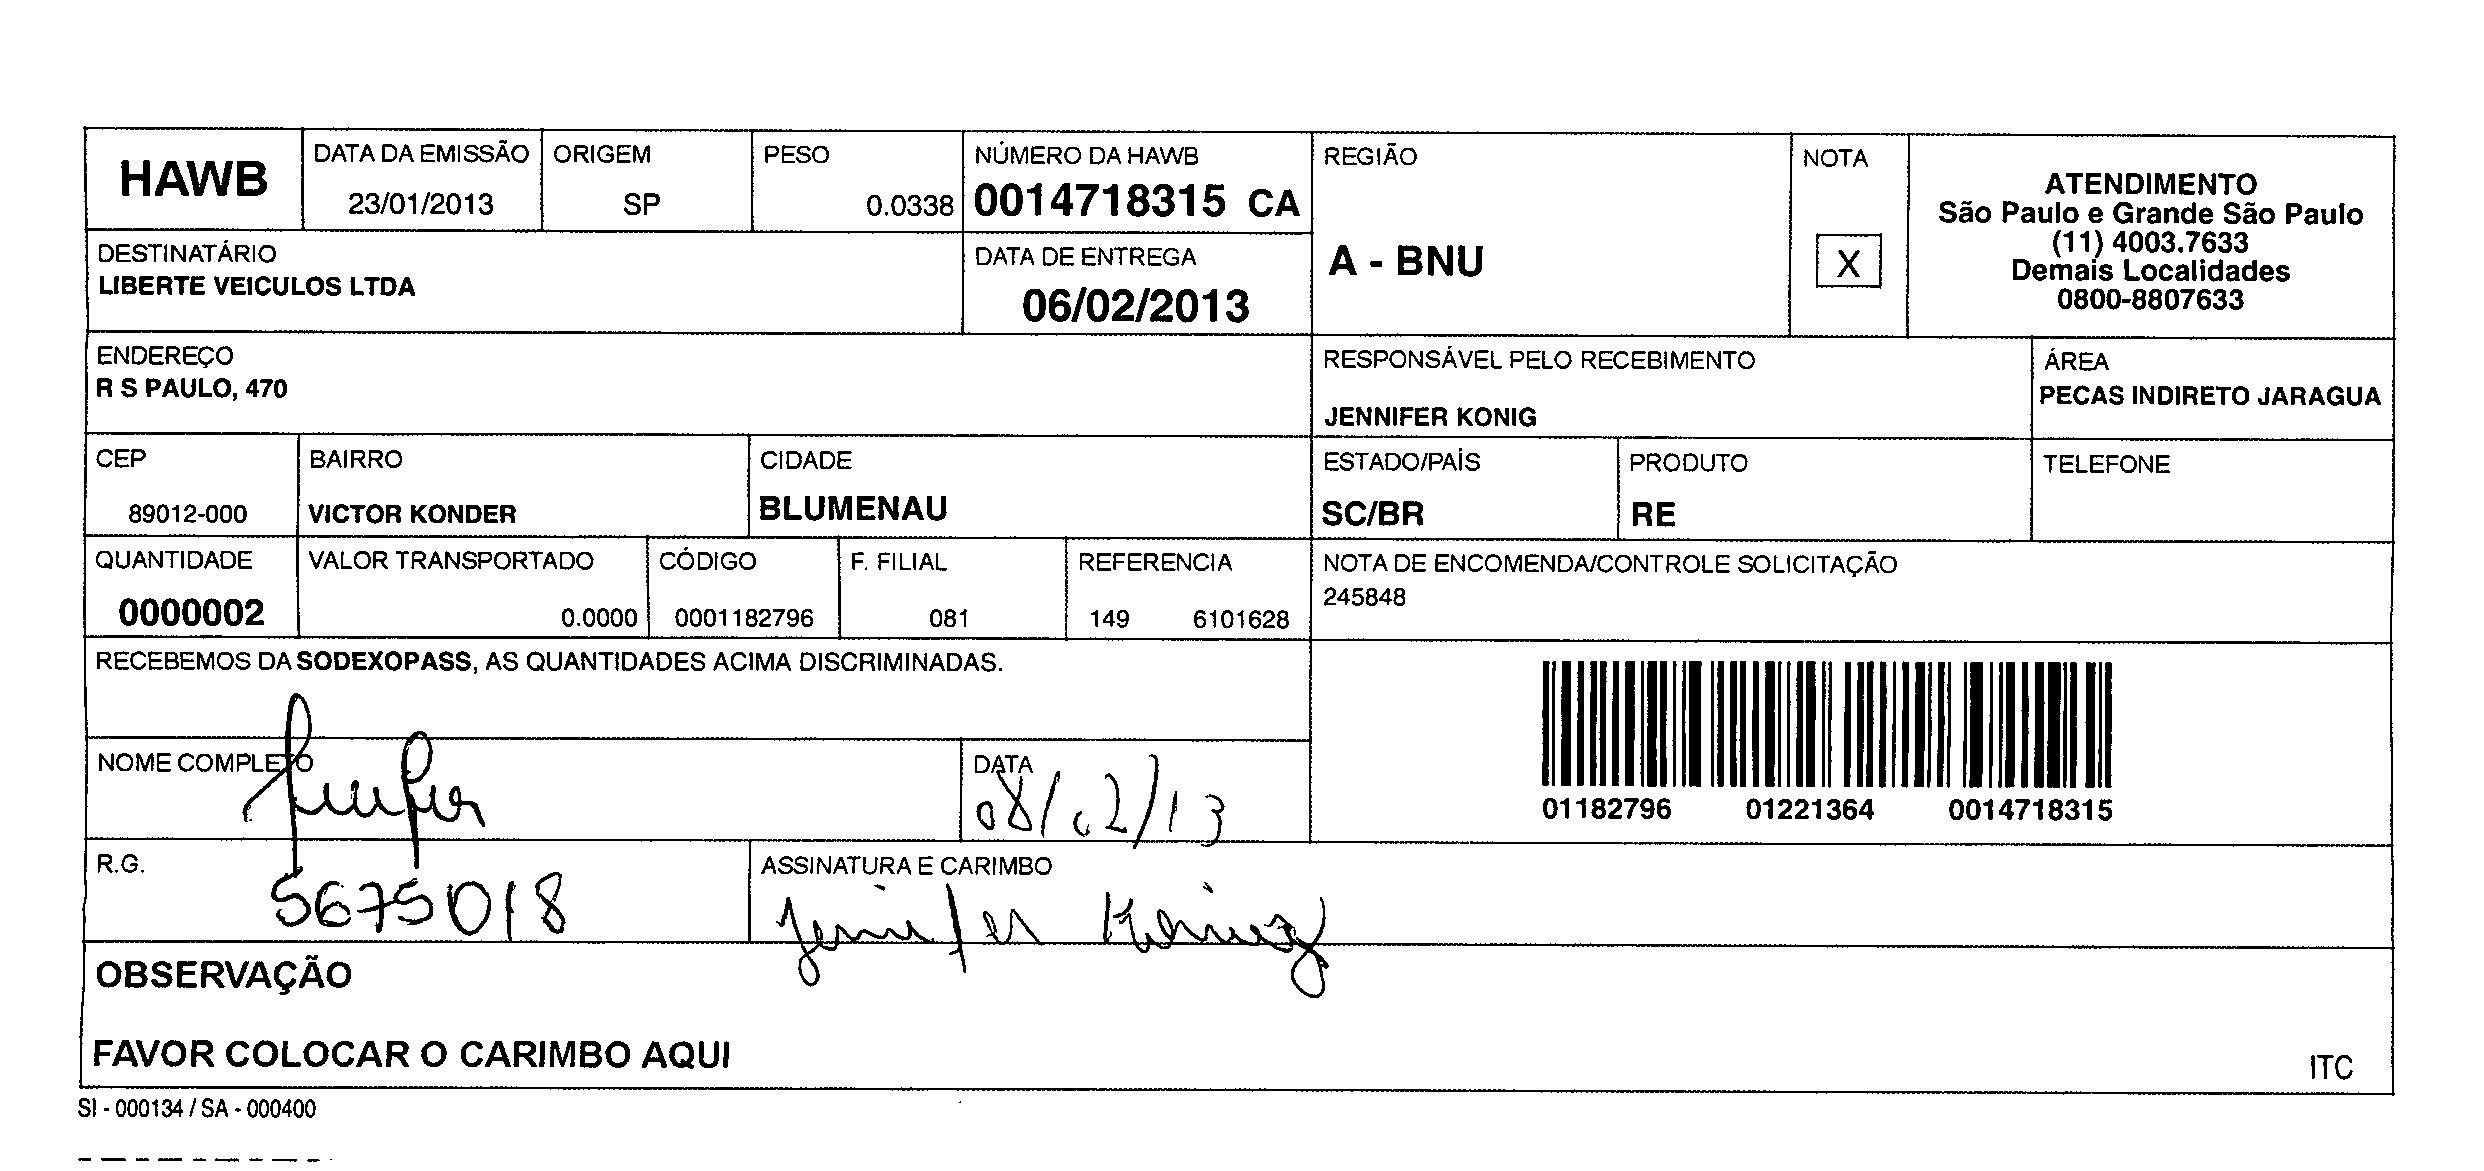 HAWB
DATA DA EMISSÃO
23/01/2013
ORIGEM
SP
PESO
0.0338
NÚMERO DA HAWB
0014718315 CA
REGIÃO
A - BNU
NOTA
X
ATENDIMENTO
São Paulo e Grande São Paulo
(11) 4003.7633
Demais Localidades
0800-8807633
DESTINATÁRIO
LIBERTE VEICULOS LTDA
DATA DE ENTREGA
06/02/2013
ENDEREÇO
R S PAULO, 470
RESPONSÁVEL PELO RECEBIMENTO
JENNIFER KONIG
ÁREA
PECAS INDIRETO JARAGUA
CEP
89012-000
BAIRRO
VICTOR KONDER
CIDADE
BLUMENAU
ESTADO/PAÍS
SC/BR
PRODUTO
RE
TELEFONE
QUANTIDADE
0000002
VALOR TRANSPORTADO
0.0000
CÓDIGO
0001182796
F. FILIAL
081
REFERENCIA
149 6101628
NOTA DE ENCOMENDA/CONTROLE SOLICITAÇÃO
245848
RECEBEMOS DA SODEXOPASS, AS QUANTIDADES ACIMA DISCRIMINADAS.
01182796 01221364 0014718315
NOME COMPLETO
DATA
08/02/13
R.G.
5675018
ASSINATURA E CARIMBO
OBSERVAÇÃO
FAVOR COLOCAR O CARIMBO AQUI
ITC
SI - 000134 / SA - 000400